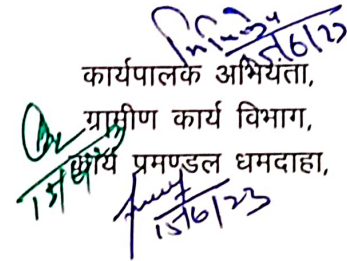 15/6/23
कार्यपालक अभियंता,
ग्रामीण कार्य विभाग,
कार्य प्रमण्डल धमदाहा,
15/6/23